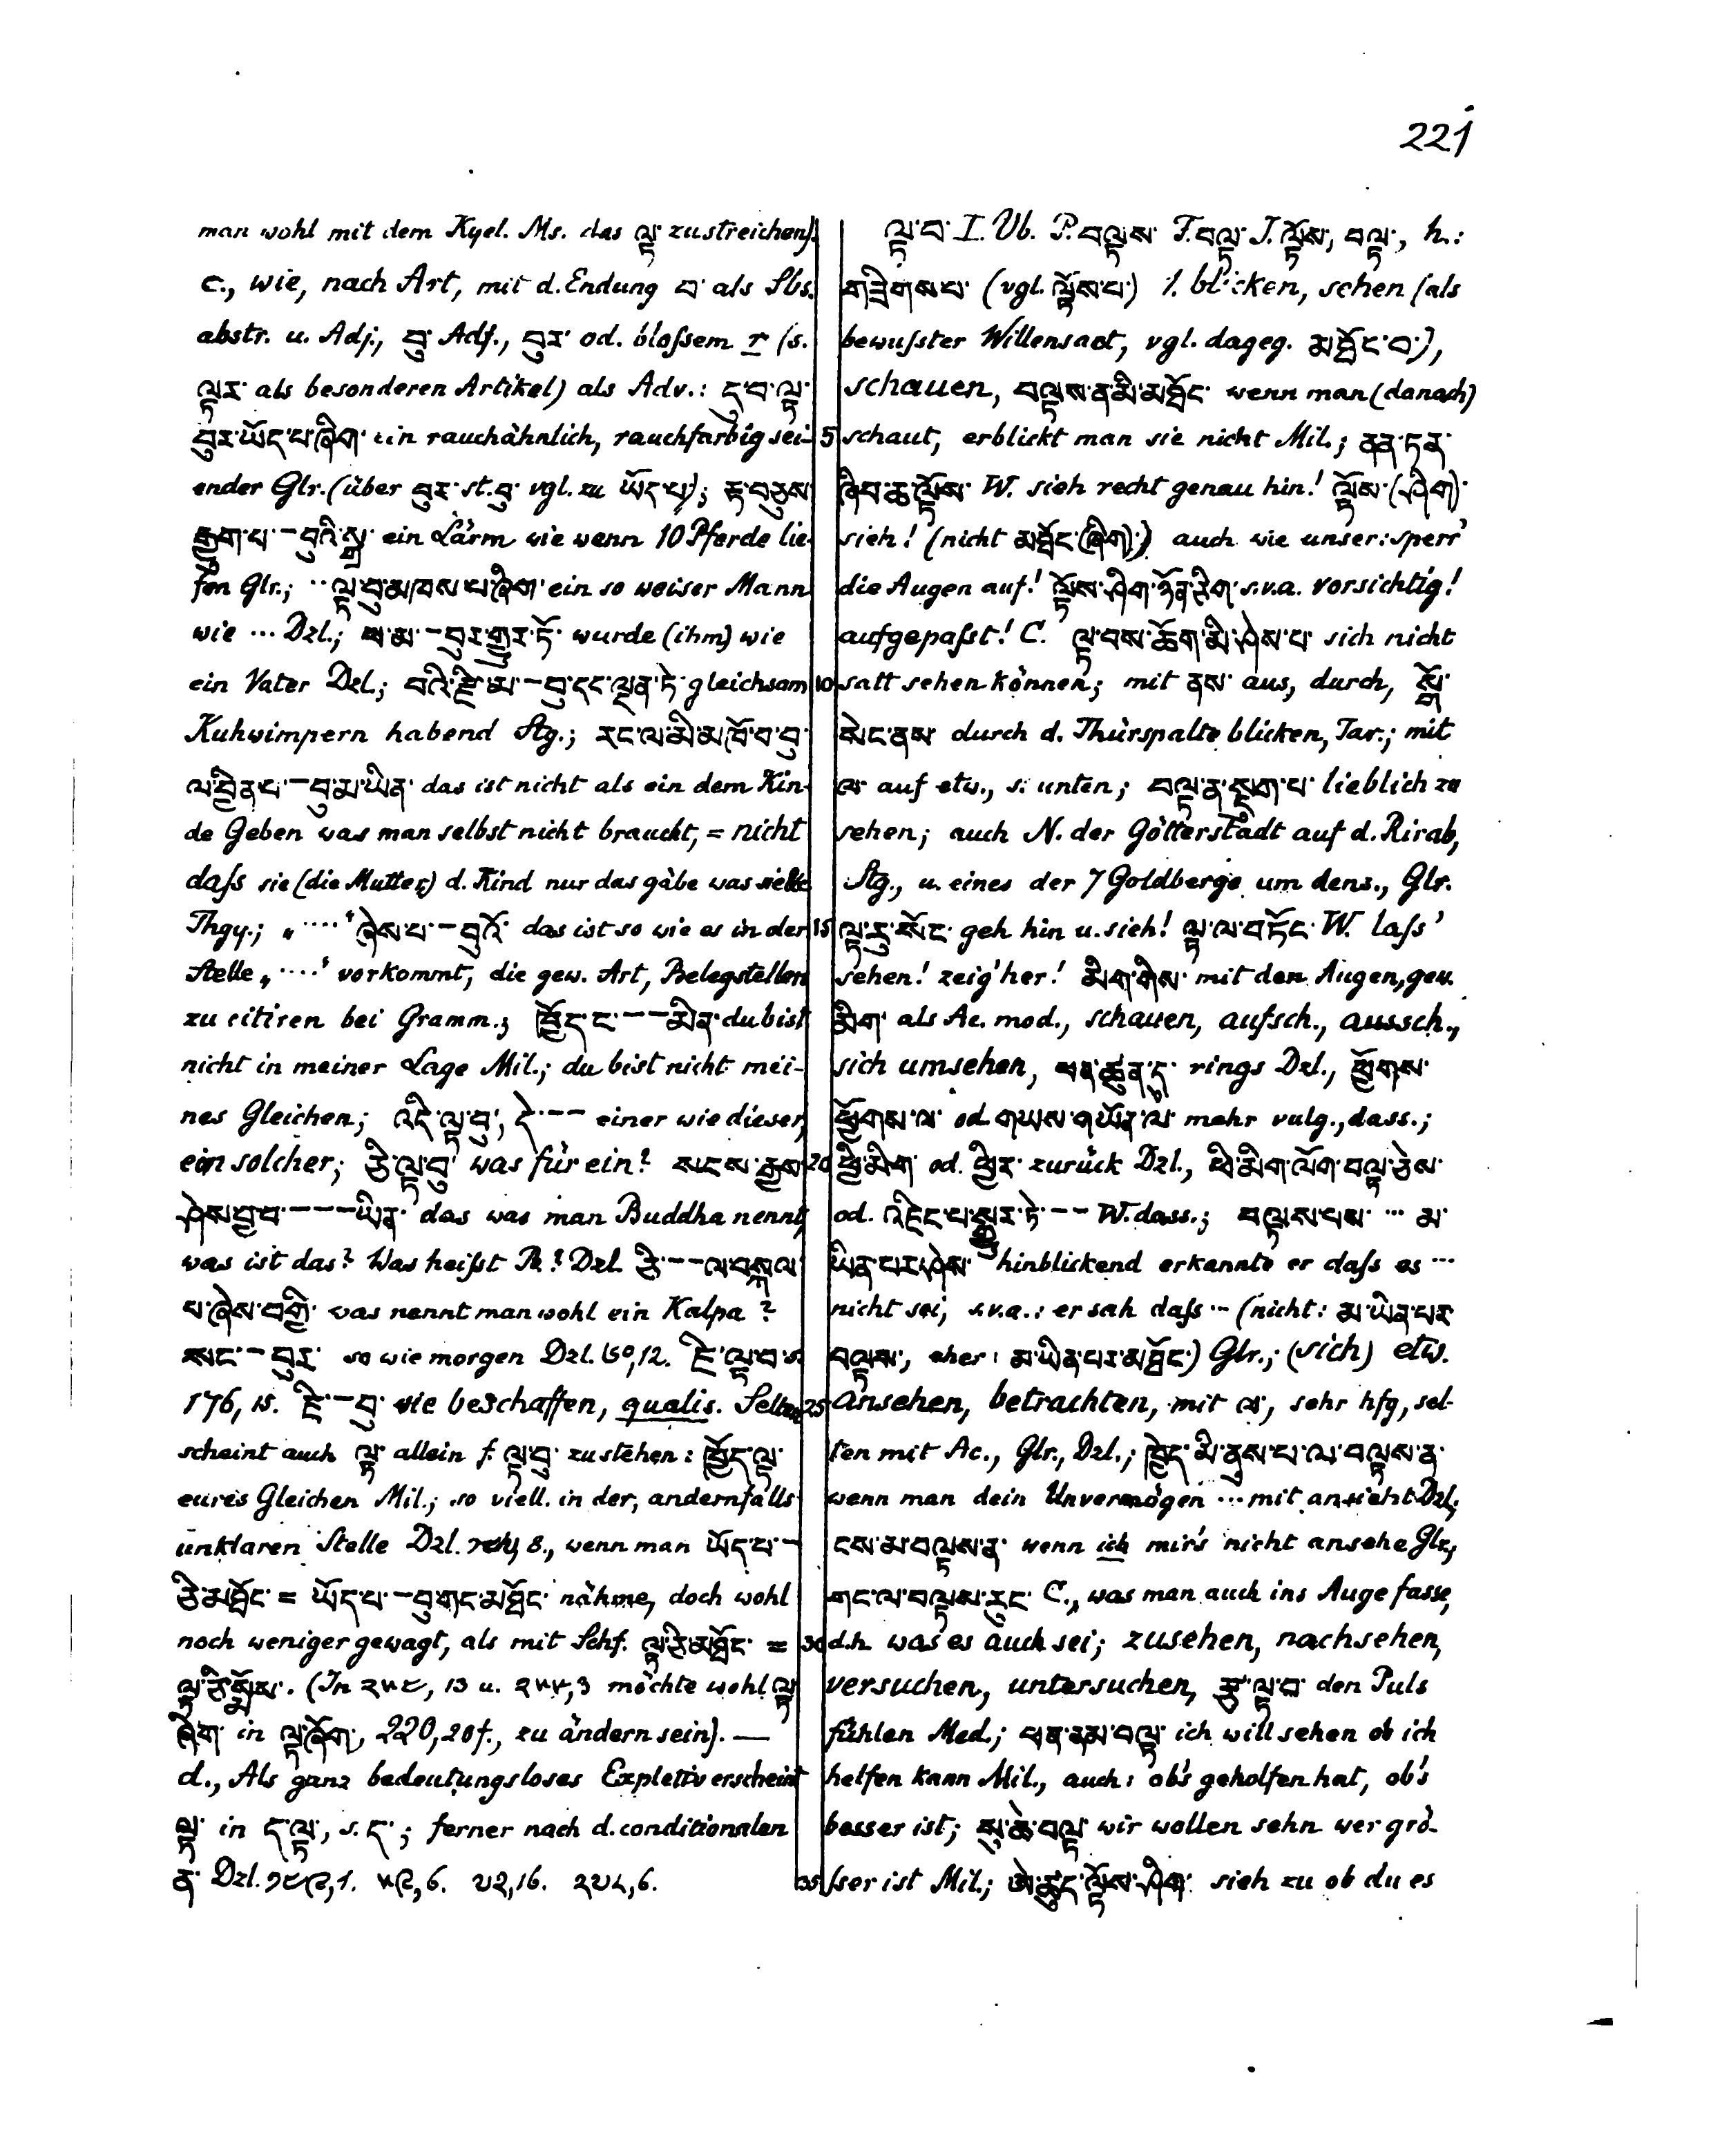 221
man wohl mit dem Kyel. Ms. das ལྟ་ zustreichen).
c., wie, nach Art, mit d. Endung བ་ als Sbs.
abstr. u. Adj., བུ་ Adj., བུར་ od. bloſsem r (s.
ལྟར་ als besonderen Artikel) als Adv.: དུ་བ་ལྟ་
བུར་ཡོད་པ་ཞིག་ ein rauchähnlich, rauchfarbig sei- 5
ender Glr. (über བུར་ st. བུ་ vgl. zu ཡོད་པ་); རྟ་བཅུས་
རྒྱུག་པ་ – བུའི་སྒྲ་ ein Lärm wie wenn 10 Pferde lie-
fen Glr.; ·· ལྟ་བུ་མཁས་པ་ཞིག་ ein so weiser Mann
wie ··· Dzl.; ཕ་མ་ – བུར་གྱུར་ཏོ་ wurde (ihm) wie
ein Vater Dzl.; བའི་རྫི་མ་ – བུ་དང་ལྡན་ཏེ་ gleichsam 10
Kuhwimpern habend Stg.; རང་ལ་མི་མཁོ་བ་བུ་
ལ་བྱིན་པ་ – བུ་མ་ཡིན་ das ist nicht als ein dem Kin-
de Geben was man selbst nicht braucht, = nicht
daſs sie (die Mutter) d. Kind nur das gäbe was sie
Thgy.; „····“ ཞེས་པ་ – བུའོ་ das ist so wie es in der 15
Stelle „····“ vorkommt, die gew. Art, Belegstellen
zu citiren bei Gramm.; ཁྱོད་ང་ – – མིན་ du bist
nicht in meiner Lage Mil.; du bist nicht mei-
nes Gleichen; འདི་ལྟ་བུ་, དེ་ – – einer wie dieser,
ein solcher; ཅི་ལྟ་བུ་ was für ein? སངས་རྒྱས་ 20
ཤེས་བྱ་བ་ – – – ཡིན་ das was man Buddha nennt,
was ist das? Was heiſst B.? Dzl. ཅི་ – – ལ་བསྐལ་
པ་ཞེས་བགྱི་ was nennt man wohl ein Kalpa?
སང་ – བུར་ so wie morgen Dzl. ༦༠, 12. ཇི་ལྟ་བ་ s.
176, 15. ཇི་ – བུ་ wie beschaffen, qualis. Selten 25
scheint auch ལྟ་ allein f. ལྟ་བུ་ zu stehen: ཁྱོད་ལྟ་
eures Gleichen Mil.; so viell. in der, andernfalls
unklaren Stelle Dzl. 8., wenn man ཡོད་པ་ –
ཅི་མཐོང་ = ཡོད་པ་ – བུ་གང་མཐོང་ nähme, doch wohl
noch weniger gewagt, als mit Schf. ལྟ་ཅི་མཐོང་ = 30
ལྟ་ཅི་སྨོས་. (In ༢༥༨, 13 u. ༢༥༥, 3 möchte wohl ལྟ་
ཞིག་ in ལྟ་ཞོག་, 220, 20 f., zu ändern sein). —
d., Als ganz bedeutungsloses Expletiv erscheint
ལྟ་ in ད་ལྟ་, s. ད་; ferner nach d. conditionalen
ན་ Dzl. ༡༨༩, 1. ༥༩, 6. ༢༢, 16. ༢༢༤, 6. 35
ལྟ་བ་ I. Vb. P. བལྟས་ F. བལྟ་ J. ལྟོས་, བལྟ་, h.:
གཟིགས་པ་ (vgl. ལྟོས་པ་) 1. blicken, sehen (als
bewuſster Willensact, vgl. dageg. མཐོང་བ་),
schauen, བལྟས་ན་མི་མཐོང་ wenn man (danach)
schaut, erblickt man sie nicht Mil.; ནན་ཏན་
ཞིབ་ཆ་ལྟོས་ W. sieh recht genau hin! ལྟོས་(ཤིག)་
sieh! (nicht མཐོང་(ཞིག)་) auch wie unser: sperr'
die Augen auf! ལྟོས་ཤིག་ཉོན་ཅིག་ s.v.a. vorsichtig!
aufgepaſst! C. ལྟ་བས་ཆོག་མི་ཤེས་པ་ sich nicht
satt sehen können; mit ནས་ aus, durch, སྒོ་
སེང་ནས་ durch d. Thürspalte blicken, Tar.; mit
ལ་ auf etw., s. unten; བལྟ་ན་སྡུག་པ་ lieblich zu
sehen; auch N. der Götterstadt auf d. Rirab,
Stg., u. eines der 7 Goldberge um dens., Glr.
ལྟ་རུ་སོང་ geh hin u. sieh! ལྟ་ལ་བཏོང་ W. laſs'
sehen! zeig' her! མིག་གིས་ mit den Augen, gew.
མིག་ als Ac. mod., schauen, aufsch., aussch.,
sich umsehen, ཕན་ཚུན་དུ་ rings Dzl., ཕྱོགས་
ཕྱོགས་ལ་ od. གཡས་གཡོན་ལ་ mehr vulg., dass.;
ཕྱི་མིག་ od. ཕྱིར་ zurück Dzl., ཕྱི་མིག་ལོག་བལྟ་ཅེས་
od. འཇིང་པ་སྐྱུར་ཏེ་ – – W. dass.; བལྟས་པས་ ··· མ་
ཡིན་པར་ཤེས་ hinblickend erkannte er daſs es ···
nicht sei, s.v.a.: er sah daſs ·· (nicht: མ་ཡིན་པར་
བལྟས་, eher: མ་ཡིན་པར་མཐོང་) Glr.; (sich) etw.
ansehen, betrachten, mit ལ་, sehr hfg, sel-
ten mit Ac., Glr., Dzl.; ཁྱེད་མི་ནུས་པ་ལ་བལྟས་ན་
wenn man dein Unvermögen ··· mit ansieht Dzl;
ངས་མ་བལྟས་ན་ wenn ich mir's nicht ansehe Glr,
གང་ལ་བལྟས་རུང་ C., was man auch ins Auge fasse,
d.h. was es auch sei; zusehen, nachsehen,
versuchen, untersuchen, རྩ་ལྟ་བ་ den Puls
fühlen Med.; ཕན་ནམ་བལྟ་ ich will sehen ob ich
helfen kann Mil., auch: ob's geholfen hat, ob's
besser ist; སུ་ཆེ་བལྟ་ wir wollen sehn wer grö-
ſser ist Mil.; ཨེ་ཚུད་ལྟོས་ཤིག་ sieh zu ob du es